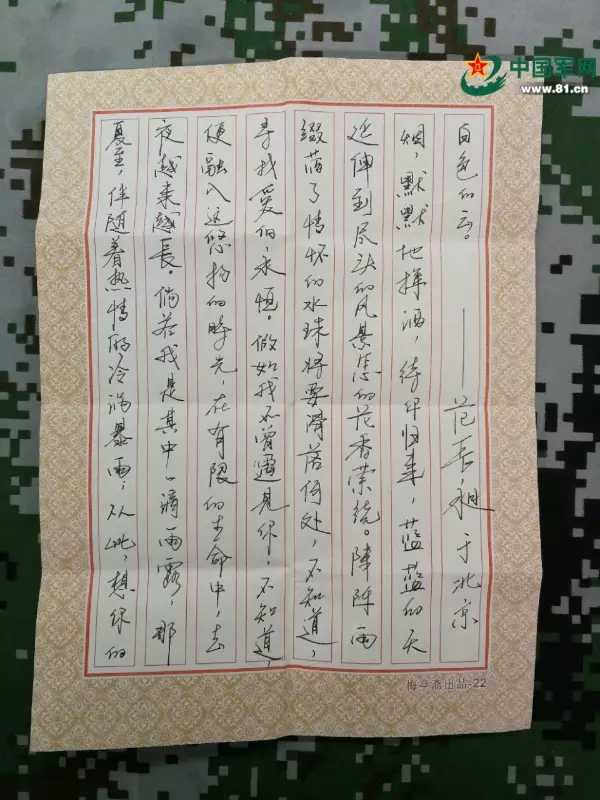 夏至,伴随着热情的冷淌暴雨;从此,想你的
夜越来越長。倘若我是其中一滴雨露,那
便融入这悠扬的時光,在有限的生命中,去
寻找爱的,永恒。做如我不曾遇見你,不知道,
缀落了情怀的水珠将要滑落何处,不知道,
延伸到尽头的风景怎的花香萦绕。陣阵雨
烟,默默地挥洒,待你归来,蓝蓝的天
白色的云。
——范長昶于北京
梅亭斋出品-22
中国军网
www.81.cn